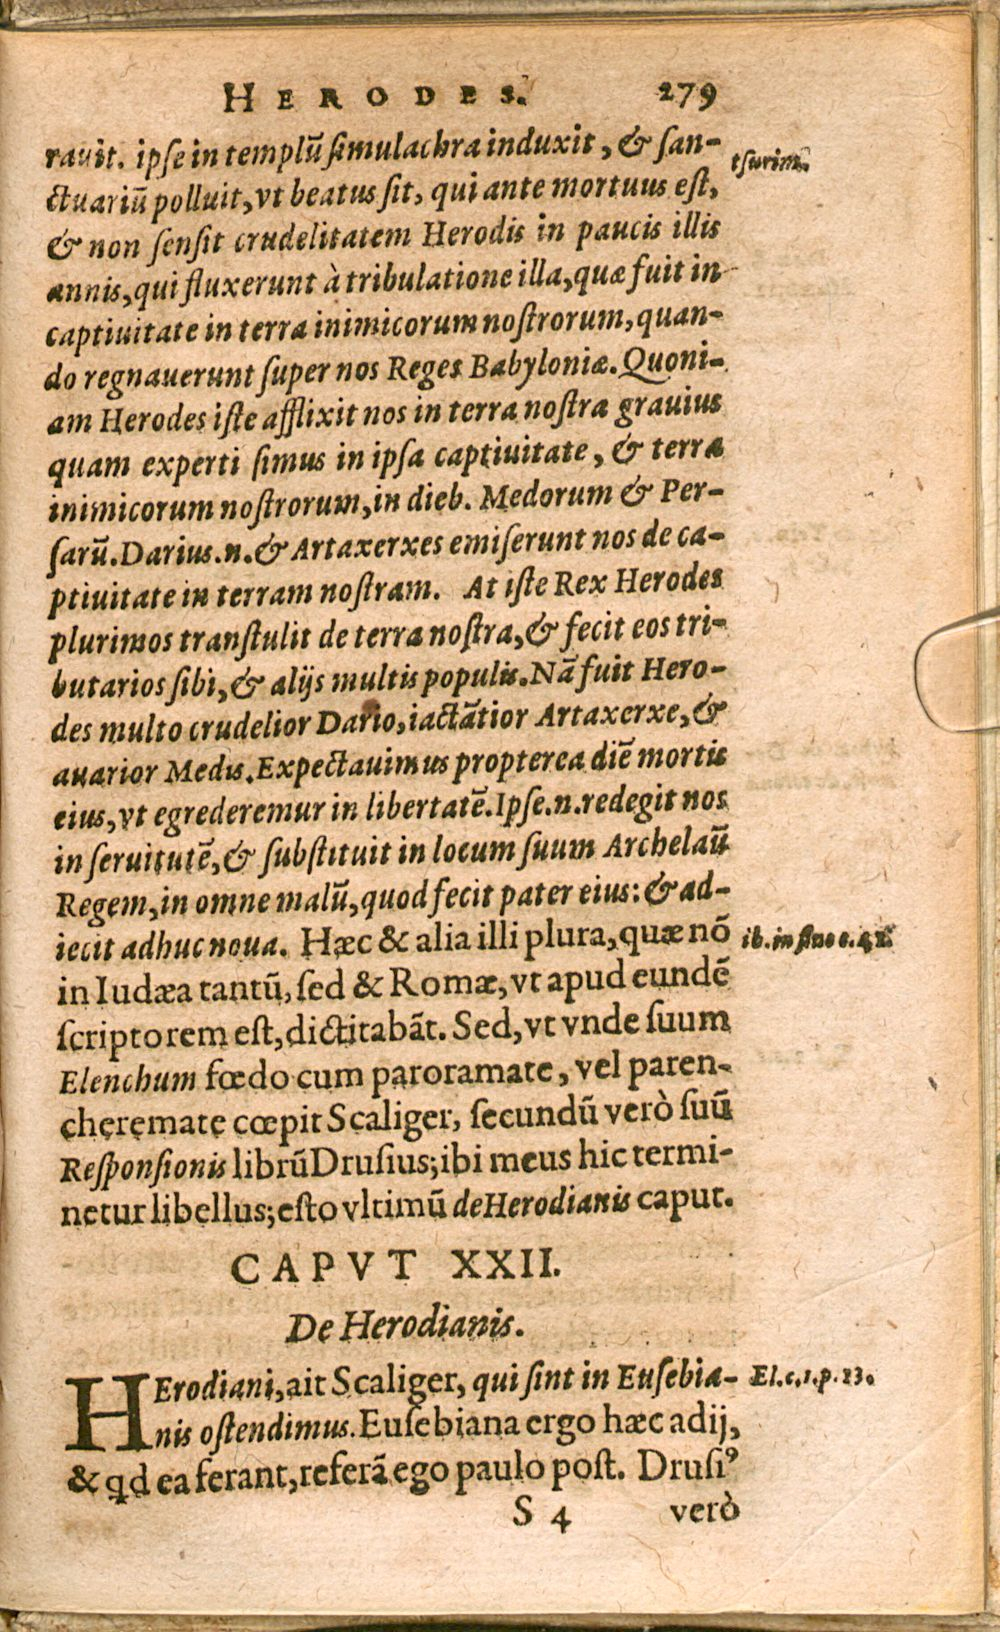 HERODES. 279
rauit. ipse in templū simulachra induxit, & san-
ctuariū polluit, vt beatus sit, qui ante mortuus est,
& non sensit crudelitatem Herodis in paucis illis
annis, qui fluxerunt à tribulatione illa, quæ fuit in
captiuitate in terra inimicorum nostrorum, quan-
do regnauerunt super nos Reges Babyloniæ. Quoni-
am Herodes iste afflixit nos in terra nostra grauius
quam experti simus in ipsa captiuitate, & terra
inimicorum nostrorum, in dieb. Medorum & Per-
sarū. Darius .n. & Artaxerxes emiserunt nos de ca-
ptiuitate in terram nostram. At iste Rex Herodes
plurimos transtulit de terra nostra, & fecit eos tri-
butarios sibi, & alijs multis populis. Nā fuit Hero-
des multo crudelior Dario, iactātior Artaxerxe, &
auarior Medis. Expectauimus propterea diē mortis
eius, vt egrederemur in libertatē. Ipse .n. redegit nos
in seruitutē, & substituit in locum suum Archelaū
Regem, in omne malū, quod fecit pater eius: & ad-
iecit adhuc noua. Hæc & alia illi plura, quæ nō ib. in fine c. 42.
in Iudæa tantū, sed & Romæ, vt apud eundē
scriptorem est, dictitabāt. Sed, vt vnde suum
Elenchum fœdo cum paroramate, vel paren-
cheremate cœpit Scaliger, secundū verò suū
Responsionis librū Drusius; ibi meus hic termi-
netur libellus; esto vltimū de Herodianis caput.
CAPVT XXII.
De Herodianis.
HErodiani, ait Scaliger, qui sint in Eusebia- El. c. 1. p. 13.
nis ostendimus. Eusebiana ergo hæc adij,
& qd ea ferant, referā ego paulo post. Drusiꝰ
S 4 verò